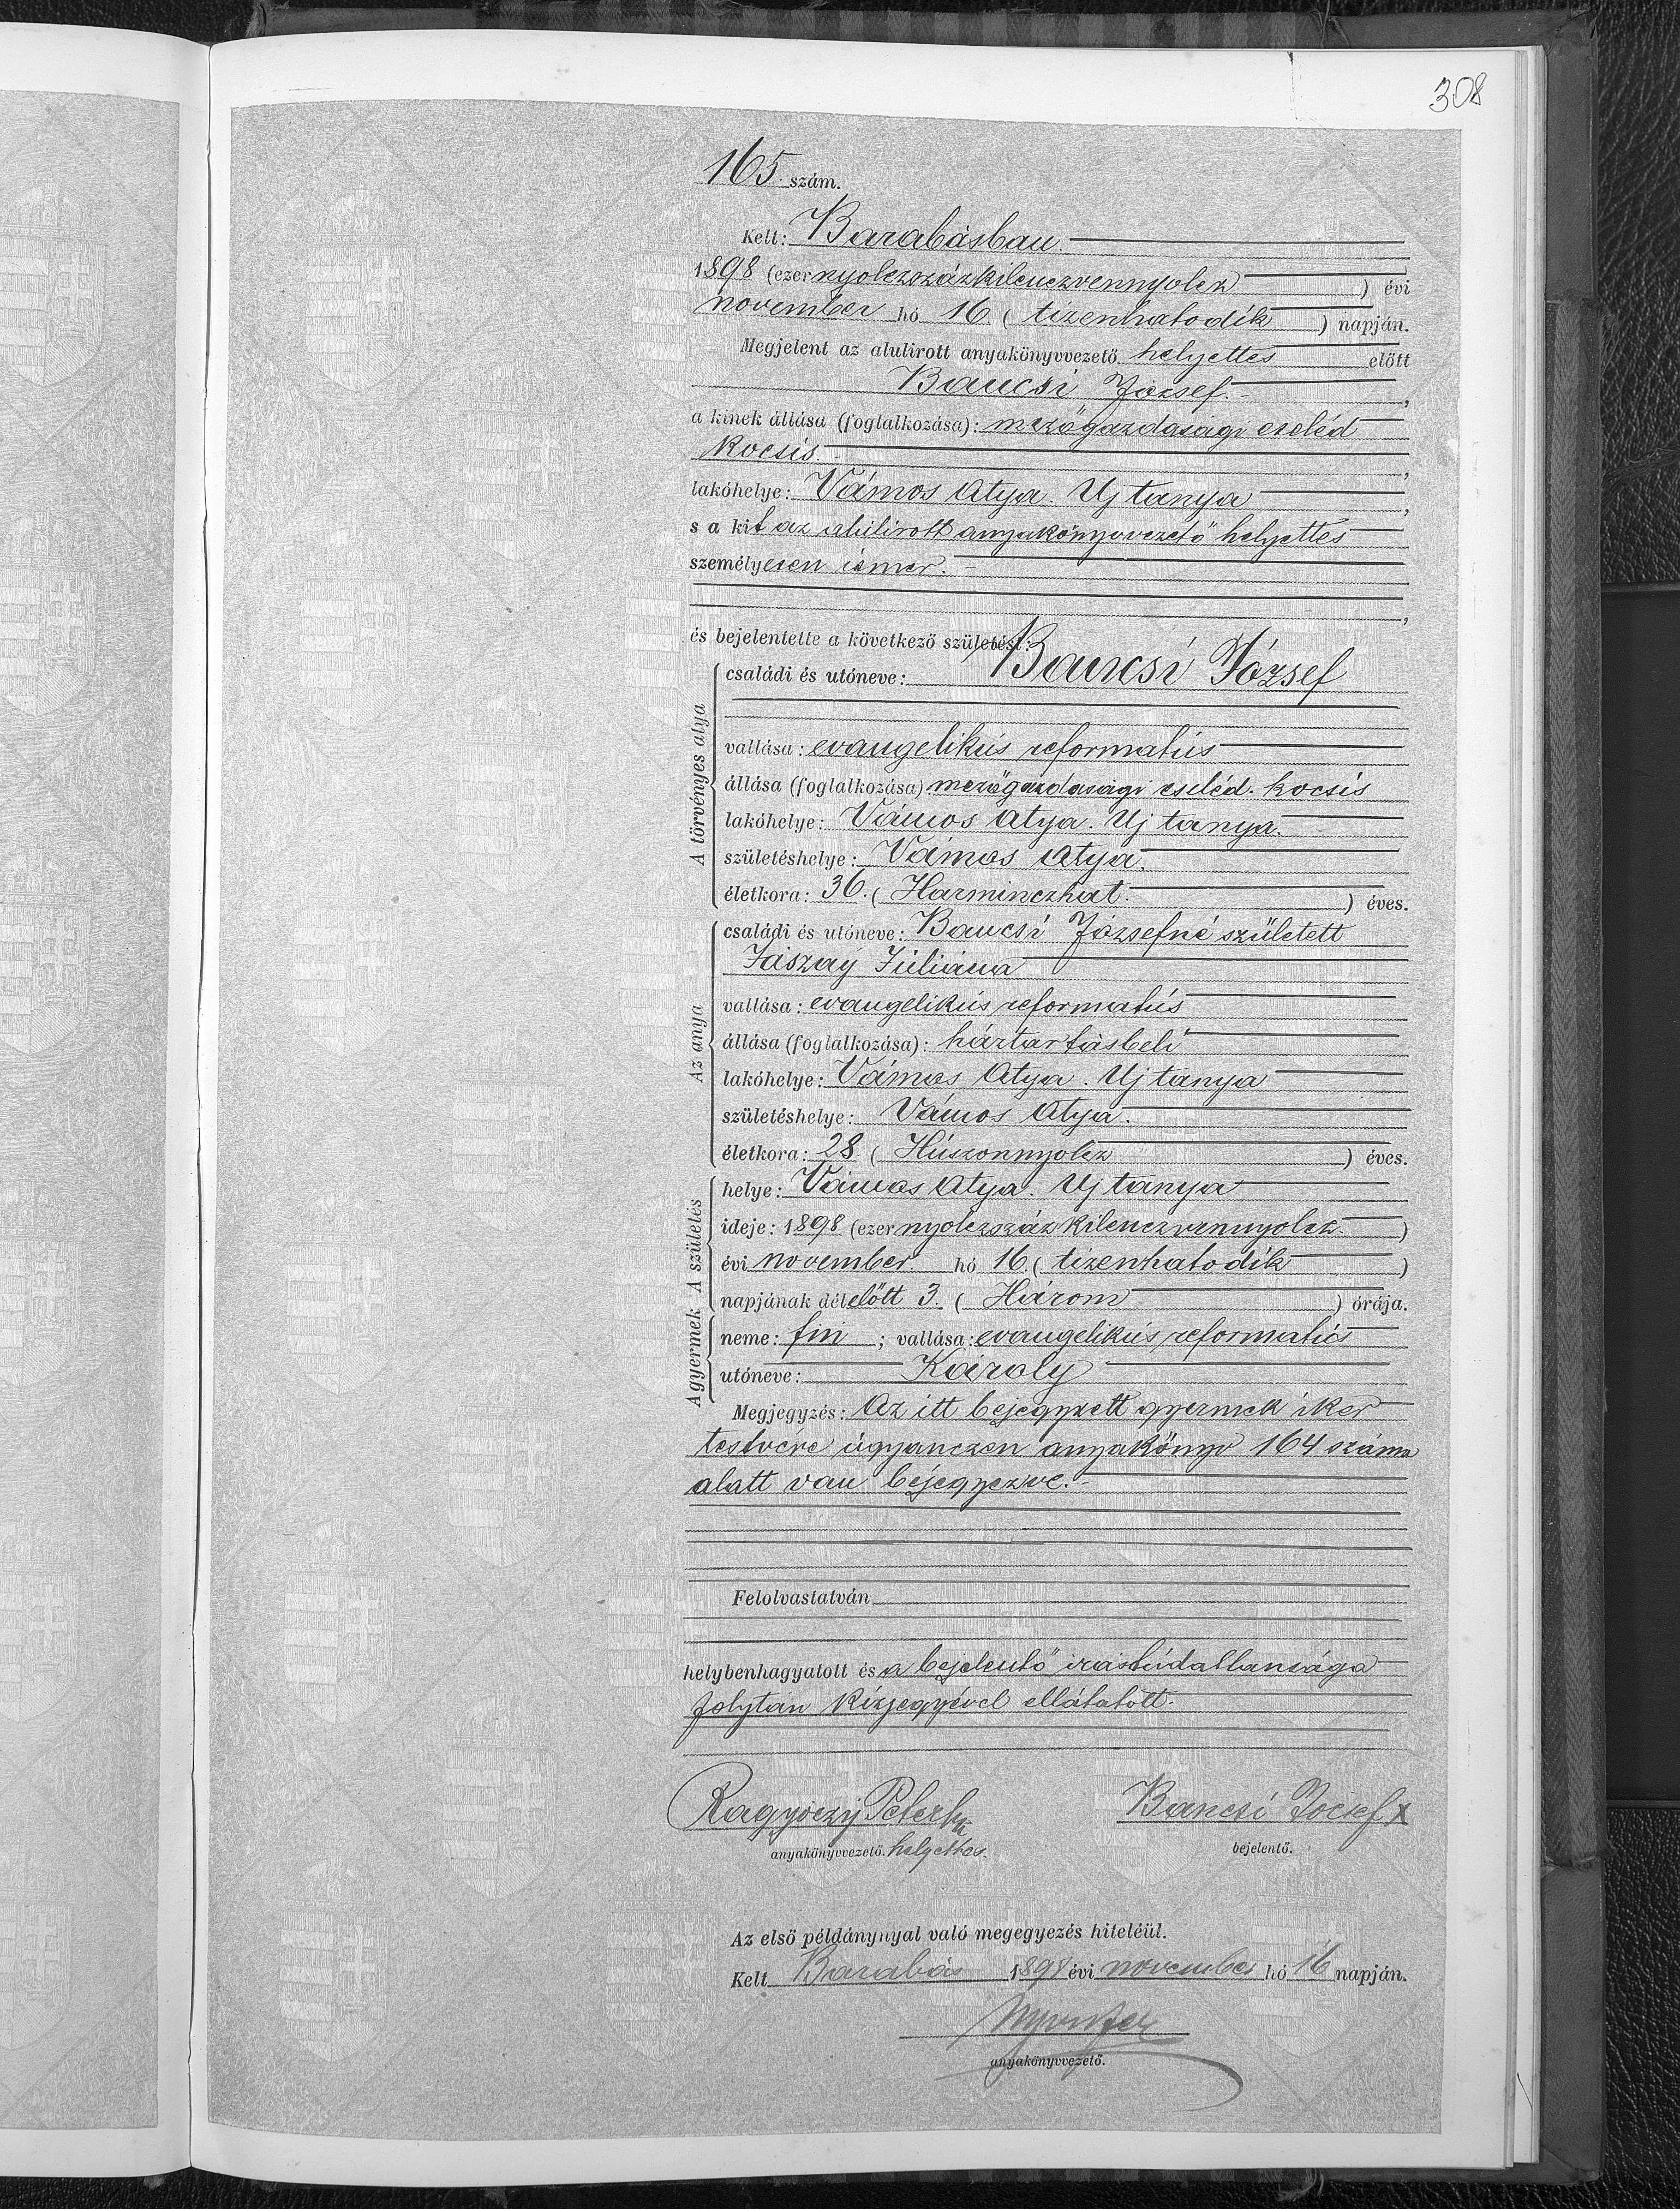 308
165. szám.
Kelt: Barabásban.
1898 (ezernyolczszázkilenczvennyolcz) évi
november hó 16. (tizenhatodik) napján.
Megjelent az alulirott anyakönyvvezető helyettes előtt
Bancsi József.
a kinek állása (foglalkozása): mezőgazdasági cseléd
kocsis.
lakóhelye: Vámos Atya. Uj tanya
s a kit az alulirott anyakönyvvezető helyettes
személyesen ismer.
és bejelentette a következő születést:
A törvényes atya
családi és utóneve: Bancsi József
vallása: evangelikús reformatús
állása (foglalkozása) mezőgazdasági cseléd. kocsis
lakóhelye: Vámos Atya. Uj tanya.
születéshelye: Vámos Atya.
életkora: 36. (Harminczhat.) éves.
Az anya
családi és utóneve: Bancsi Józsefné született
Jászay Júliána
vallása: evangelikús reformatús
állása (foglalkozása): háztartásbeli
lakóhelye: Vámos Atya. Uj tanya
születéshelye: Vámos Atya.
életkora: 28. (Húszonnyolcz) éves.
A születés
helye: Vámos Atya. Uj tanya
ideje: 1898 (ezernyolczszázkilenczvennyolcz.)
évi november. hó 16. (tizenhatodik)
napjának délelőtt 3. (Három) órája.
A gyermek
neme: fiú; vallása: evangelikús reformatús
utóneve: Károly
Megjegyzés: Az itt bejegyzett gyermek iker
testvére úgyanezen anyakönyv 164 száma
alatt van bejegyezve.
Felolvastatván
helybenhagyatott és a bejelentő irástúdatlansága
folytán kézjegyével ellátatott.
Péter Bancsi József x
anyakönyvvezető. helyettes. bejelentő.
Az első példánynyal való megegyezés hiteléül.
Kelt Barabás 1898 évi november hó 16 napján.
anyakönyvvezető.